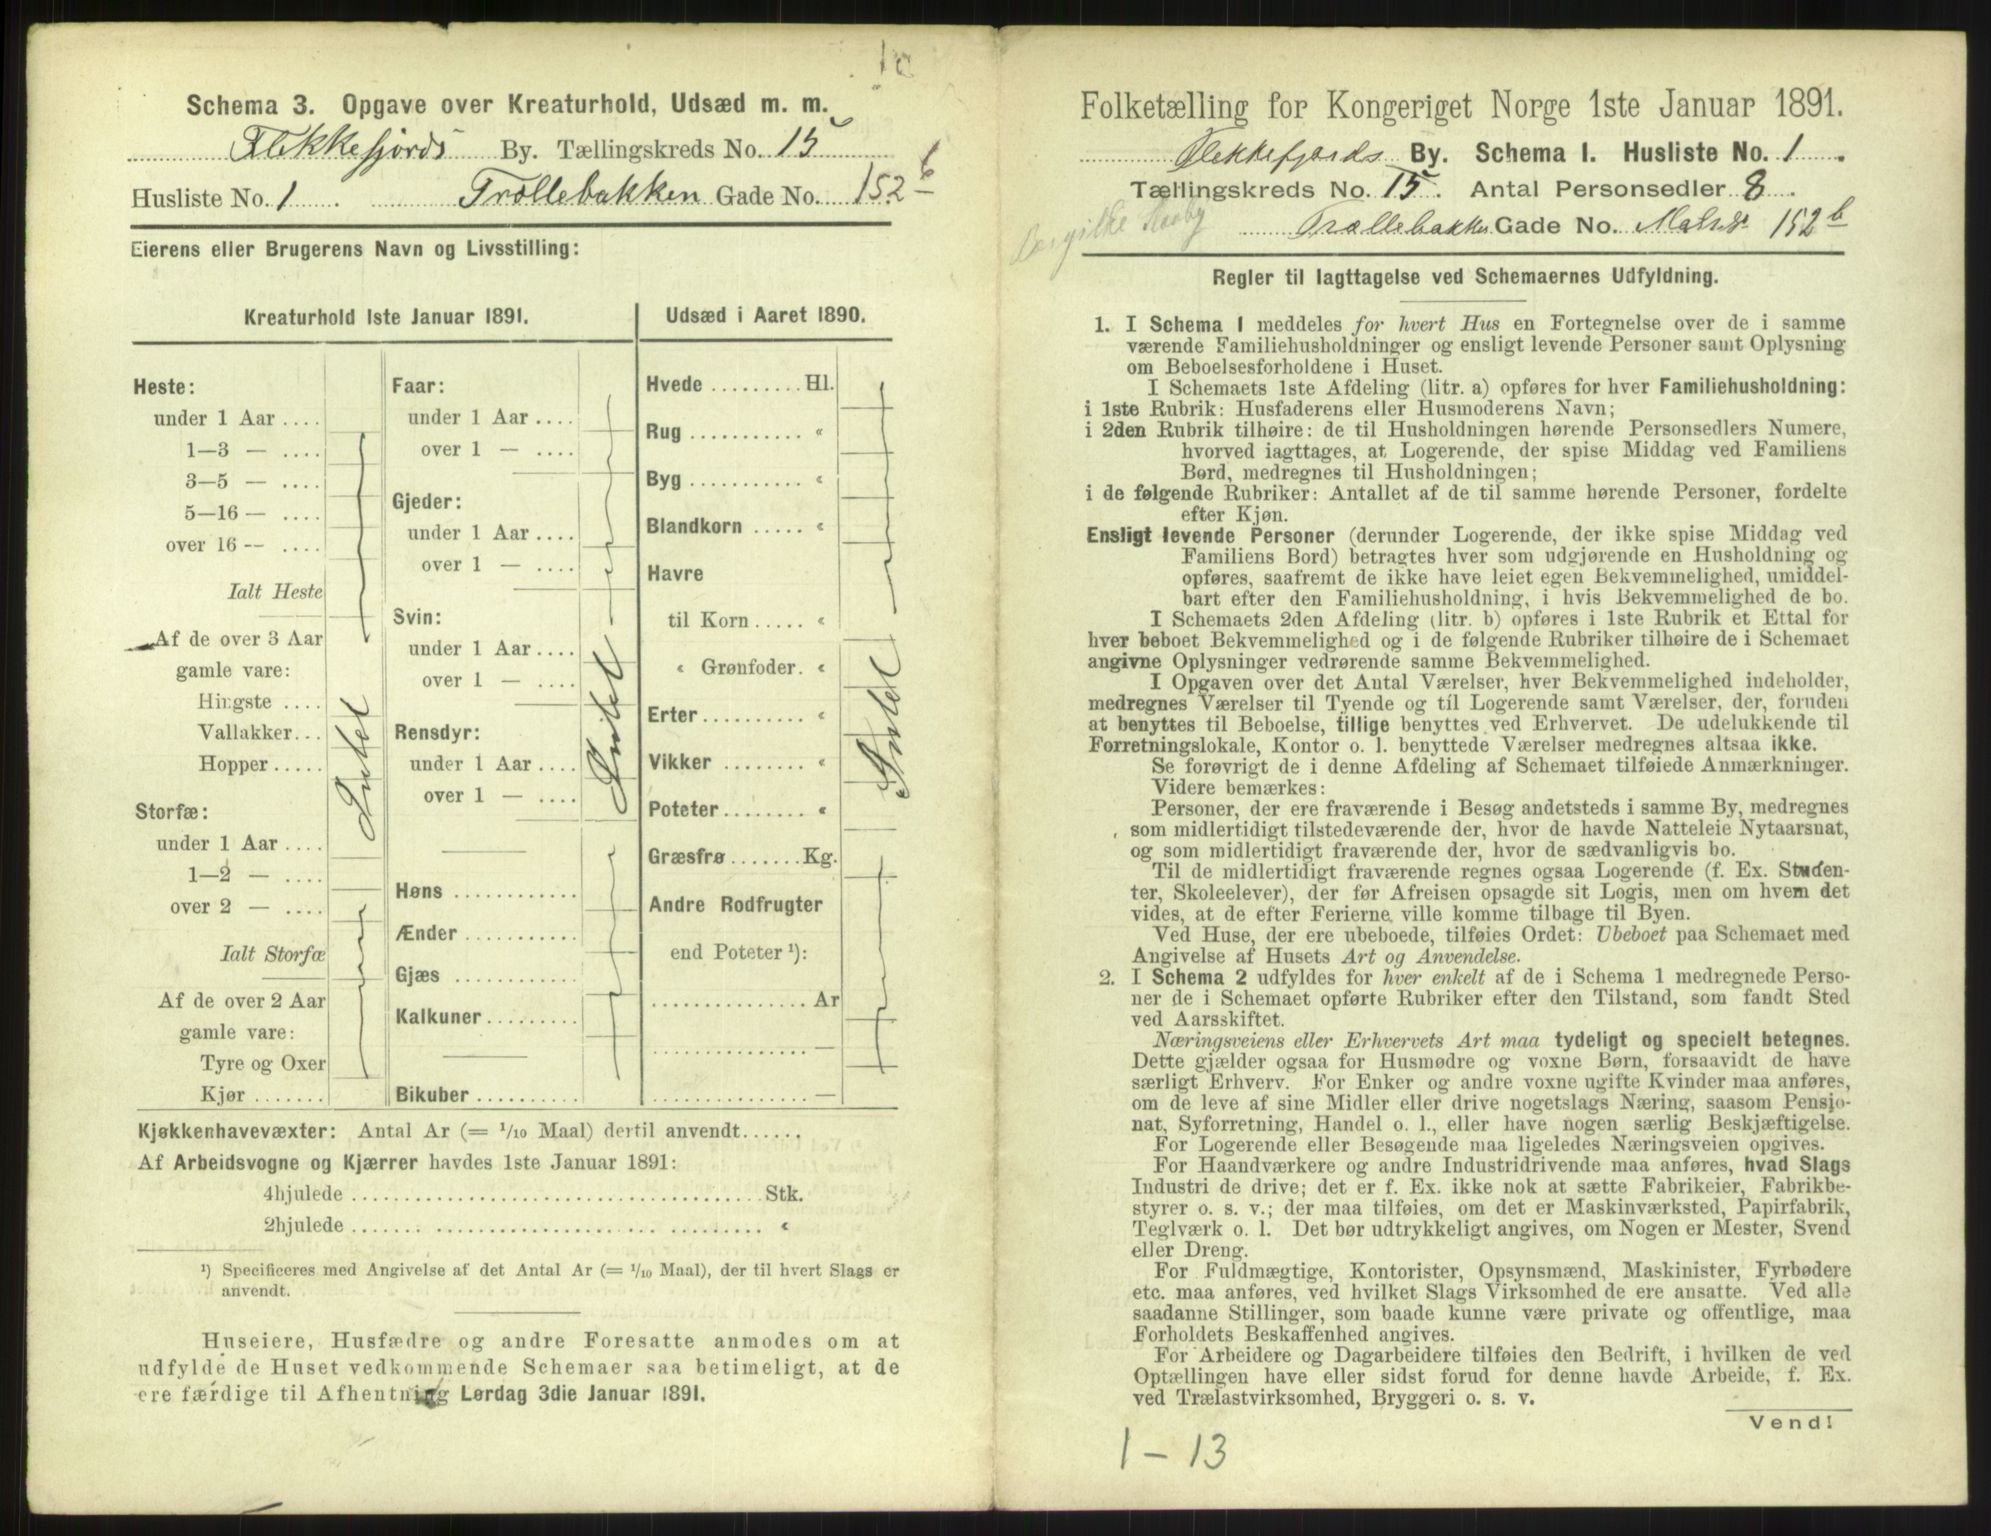 Schema 3. Opgave over Kreaturhold, Udsæd m. m.
Flekkefjords By. Tællingskreds No. 15
Husliste No. 1 Trollebakken Gade No. 152 b
Eierens eller Brugerens Navn og Livsstilling:
Kreaturhold 1ste Januar 1891.
Heste:
under 1 Aar ....
1—3 — ....
3—5 — ....
5—16 — ....
over 16 — ....
Ialt Heste
Af de over 3 Aar
gamle vare:
Hingste ....
Vallakker...
Hopper .....
Storfæ:
under 1 Aar ....
1—2 — ....
over 2 — ....
Ialt Storfæ
Af de over 2 Aar
gamle vare:
Tyre og Oxer
Kjør .......
Intet
Faar:
under 1 Aar ....
over 1 — ....
Gjeder:
under 1 Aar ....
over 1 — ....
Svin:
under 1 Aar ....
over 1 — ....
Rensdyr:
under 1 Aar ....
over 1 — ....
Høns ...........
Ænder ..........
Gjæs ...........
Kalkuner .........
Bikuber ..........
Intet
Udsæd i Aaret 1890.
Hvede ......... Hl.
Rug ........... «
Byg ............ «
Blandkorn ..... «
Havre
til Korn ..... «
« Grønfoder. «
Erter .......... «
Vikker ........ «
Poteter ........ «
Græsfrø ....... Kg.
Andre Rodfrugter
end Poteter ¹):
............... Ar
............... —
............... —
Intet
Kjøkkenhavevæxter: Antal Ar (= 1/10 Maal) dertil anvendt......
Af Arbeidsvogne og Kjærrer havdes 1ste Januar 1891:
4hjulede ........................................ Stk.
2hjulede ........................................ «
¹) Specificeres med Angivelse af det Antal Ar (= 1/10 Maal), der til hvert Slags er
anvendt.
Huseiere, Husfædre og andre Foresatte anmodes om at
udfylde de Huset vedkommende Schemaer saa betimeligt, at de
ere færdige til Afhentning Lørdag 3die Januar 1891.
Folketælling for Kongeriget Norge 1ste Januar 1891.
Flekkefjords By. Schema I. Husliste No. 1.
Tællingskreds No. 15. Antal Personsedler 8.
Trællebakken Gade No. 152 b
Regler til Iagttagelse ved Schemaernes Udfyldning.
1. I Schema 1 meddeles for hvert Hus en Fortegnelse over de i samme
værende Familiehusholdninger og ensligt levende Personer samt Oplysning
om Beboelsesforholdene i Huset.
I Schemaets 1ste Afdeling (litr. a) opføres for hver Familiehusholdning:
i 1ste Rubrik: Husfaderens eller Husmoderens Navn;
i 2den Rubrik tilhøire: de til Husholdningen hørende Personsedlers Numere,
hvorved iagttages, at Logerende, der spise Middag ved Familiens
Bord, medregnes til Husholdningen;
i de følgende Rubriker: Antallet af de til samme hørende Personer, fordelte
efter Kjøn.
Ensligt levende Personer (derunder Logerende, der ikke spise Middag ved
Familiens Bord) betragtes hver som udgjørende en Husholdning og
opføres, saafremt de ikke have leiet egen Bekvemmelighed, umiddel-
bart efter den Familiehusholdning, i hvis Bekvemmelighed de bo.
I Schemaets 2den Afdeling (litr. b) opføres i 1ste Rubrik et Ettal for
hver beboet Bekvemmelighed og i de følgende Rubriker tilhøire de i Schemaet
angivne Oplysninger vedrørende samme Bekvemmelighed.
I Opgaven over det Antal Værelser, hver Bekvemmelighed indeholder,
medregnes Værelser til Tyende og til Logerende samt Værelser, der, foruden
at benyttes til Beboelse, tillige benyttes ved Erhvervet. De udelukkende til
Forretningslokale, Kontor o. l. benyttede Værelser medregnes altsaa ikke.
Se forøvrigt de i denne Afdeling af Schemaet tilføiede Anmærkninger.
Videre bemærkes:
Personer, der ere fraværende i Besøg andetsteds i samme By, medregnes
som midlertidigt tilstedeværende der, hvor de havde Natteleie Nytaarsnat,
og som midlertidigt fraværende der, hvor de sædvanligvis bo.
Til de midlertidigt fraværende regnes ogsaa Logerende (f. Ex. Studen-
ter, Skoleelever), der før Afreisen opsagde sit Logis, men om hvem det
vides, at de efter Ferierne ville komme tilbage til Byen.
Ved Huse, der ere ubeboede, tilføies Ordet: Ubeboet paa Schemaet med
Angivelse af Husets Art og Anvendelse.
2. I Schema 2 udfyldes for hver enkelt af de i Schema 1 medregnede Perso-
ner de i Schemaet opførte Rubriker efter den Tilstand, som fandt Sted
ved Aarsskiftet.
Næringsveiens eller Erhvervets Art maa tydeligt og specielt betegnes.
Dette gjælder ogsaa for Husmødre og voxne Børn, forsaavidt de have
særligt Erhverv. For Enker og andre voxne ugifte Kvinder maa anføres,
om de leve af sine Midler eller drive nogetslags Næring, saasom Pensjo-
nat, Syforretning, Handel o. l., eller have nogen særlig Beskjæftigelse.
For Logerende eller Besøgende maa ligeledes Næringsveien opgives.
For Haandværkere og andre Industridrivende maa anføres, hvad Slags
Industri de drive; det er f. Ex. ikke nok at sætte Fabrikeier, Fabrikbe-
styrer o. s. v.; der maa tilføies, om det er Maskinværksted, Papirfabrik,
Teglværk o. l. Det bør udtrykkeligt angives, om Nogen er Mester, Svend
eller Dreng.
For Fuldmægtige, Kontorister, Opsynsmænd, Maskinister, Fyrbødere
etc. maa anføres, ved hvilket Slags Virksomhed de ere ansatte. Ved alle
saadanne Stillinger, som baade kunne være private og offentlige, maa
Forholdets Beskaffenhed angives.
For Arbeidere og Dagarbeidere tilføies den Bedrift, i hvilken de ved
Optællingen have eller sidst forud for denne havde Arbeide, f. Ex.
ved Trælastvirksomhed, Bryggeri o. s. v.
Vend!
1 - 13